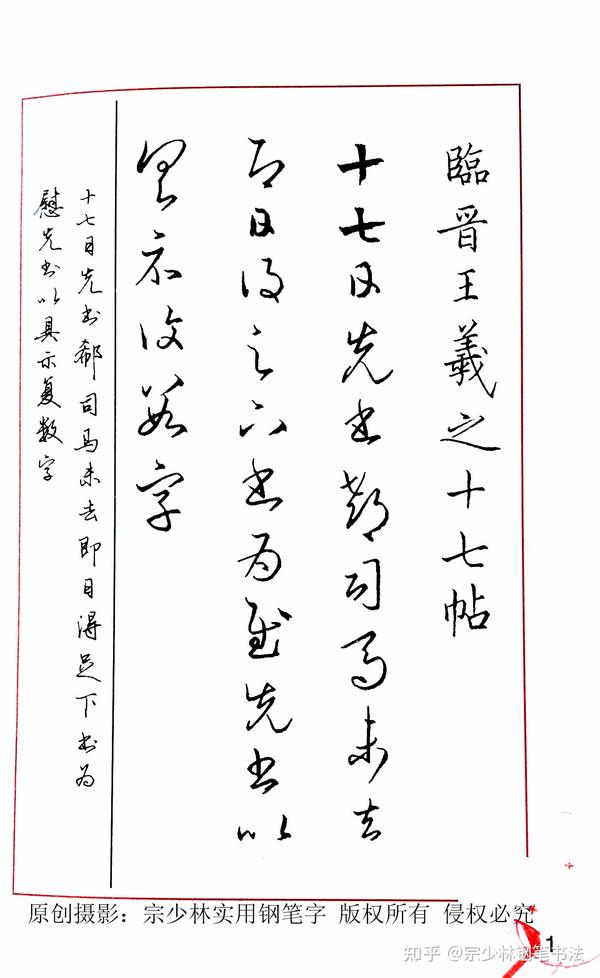 臨晋王羲之十七帖
十七日先书郗司马未去
即日得足下书为慰先书以
具示复数字
十七日先书郗司马未去即日得足下书为
慰先书以具示复数字
原创摄影：宗少林实用钢笔字 版权所有 侵权必究
知乎 @宗少林钢笔书法
1